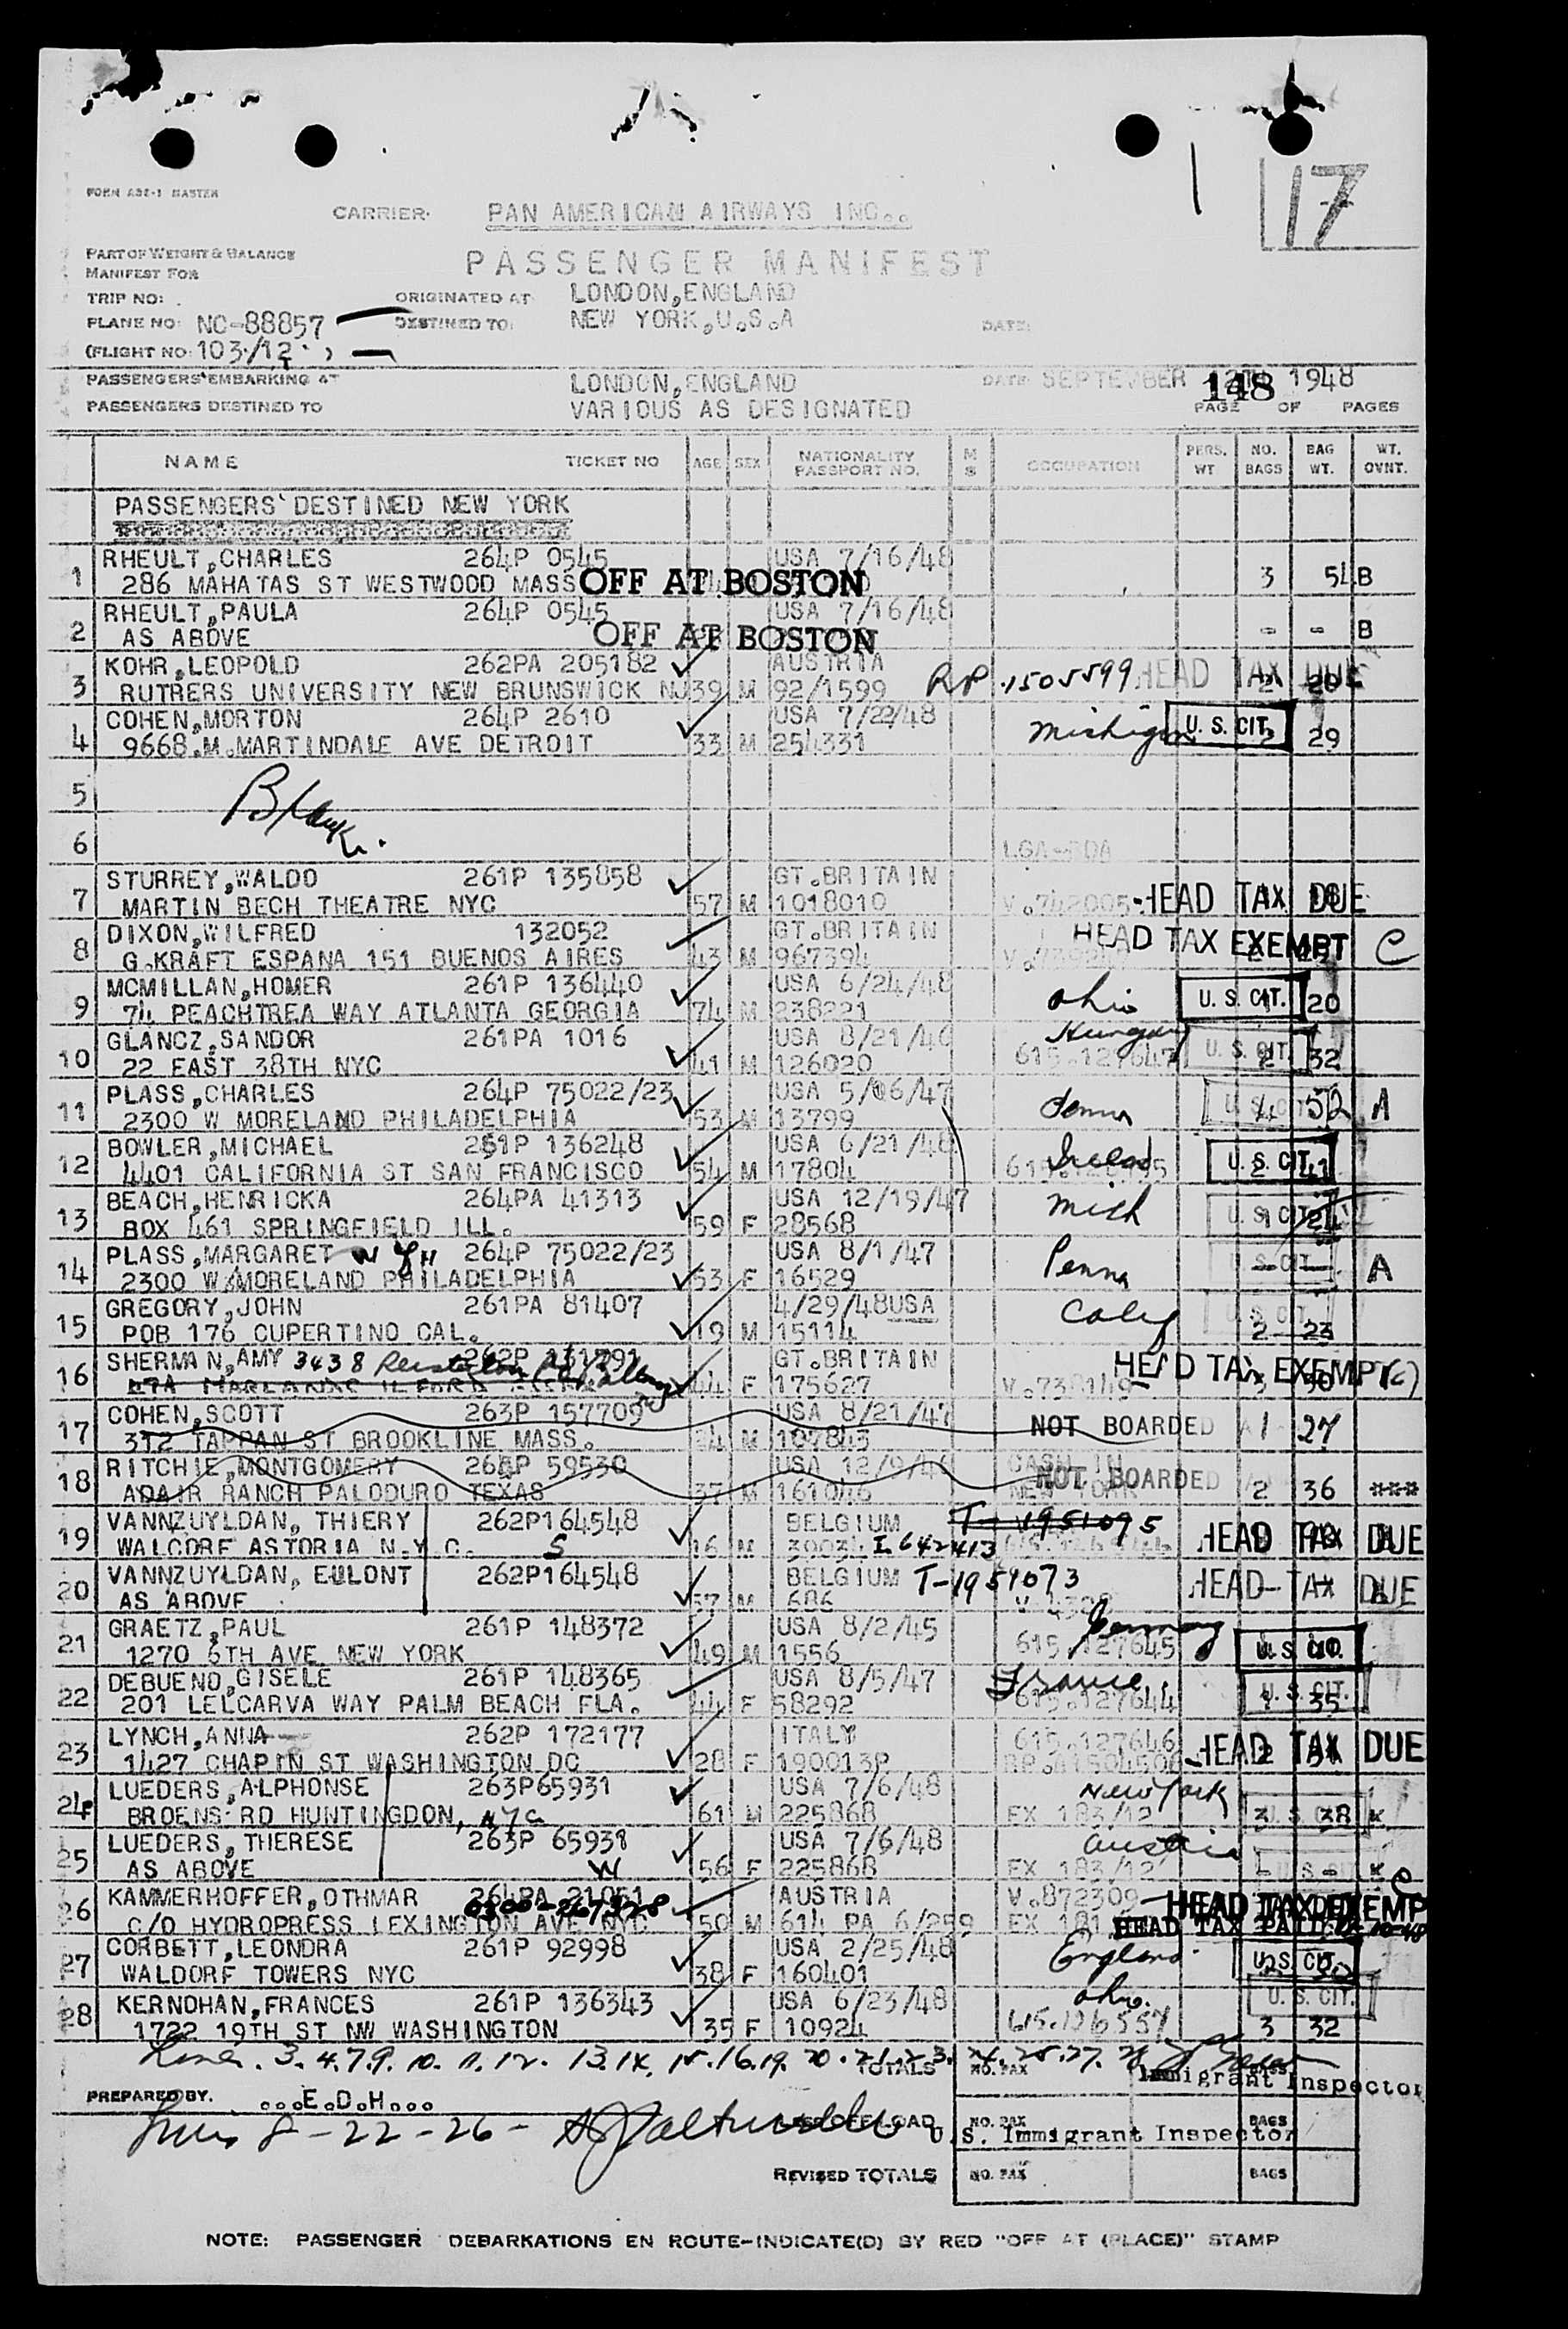 17
FORM ASE-1 MASTER
CARRIER: PAN AMERICAN AIRWAYS INC..
PART OF WEIGHT & BALANCE
MANIFEST FOR
PASSENGER MANIFEST
TRIP NO: ORIGINATED AT: LONDON,ENGLAND
PLANE NO: NC-88857 DESTINED TO: NEW YORK,U.S.A DATE:
(FLIGHT NO: 103/12 )
PASSENGERS EMBARKING AT LONDON,ENGLAND DATE: SEPTEMBER 12TH 1948
148
PASSENGERS DESTINED TO VARIOUS AS DESIGNATED PAGE OF PAGES
NAME TICKET NO AGE SEX NATIONALITY PASSPORT NO. M S OCCUPATION PERS. WT NO. BAGS BAG WT. WT. OVNT.
PASSENGERS DESTINED NEW YORK
1 RHEULT,CHARLES 264P 0545 USA 7/16/48
286 MAHATAS ST WESTWOOD MASS OFF AT BOSTON 3 54 B
2 RHEULT,PAULA 264P 0545 USA 7/16/48
AS ABOVE OFF AT BOSTON - - B
3 KOHR,LEOPOLD 262PA 205182 AUSTRIA
RUTRERS UNIVERSITY NEW BRUNSWICK NJ 39 M 92/1599 RP 1505599 HEAD TAX DUE
4 COHEN,MORTON 264P 2610 USA 7/22/48
9668.M.MARTINDALE AVE DETROIT 33 M 254331 Michigan U. S. CIT. 29
5 Blank.
6
LGA-BDA
7 STURREY,WALDO 261P 135858 GT.BRITAIN
MARTIN BECH THEATRE NYC 57 M 1018010 V.742005 HEAD TAX DUE
8 DIXON,WILFRED 132052 GT.BRITAIN HEAD TAX EXEMPT C
G.KRAFT ESPANA 151 BUENOS AIRES 43 M 967394
9 MCMILLAN,HOMER 261P 136440 USA 6/24/48
74 PEACHTREA WAY ATLANTA GEORGIA 74 M 238221 Ohio U. S. CIT. 20
10 GLANCZ,SANDOR 261PA 1016 USA 8/21/46 Hungary
22 EAST 38TH NYC 41 M 126020 615.127647 U. S. CIT. 2 32
11 PLASS,CHARLES 264P 75022/23 USA 5/06/47
2300 W MORELAND PHILADELPHIA 53 M 13799 Penna U. S. CIT. 4 52 A
12 BOWLER,MICHAEL 261P 136248 USA 6/21/48
4401 CALIFORNIA ST SAN FRANCISCO 54 M 17804 Ireland U. S. CIT. 41
13 BEACH,HENRICKA 264PA 41313 USA 12/19/47
BOX 461 SPRINGFIELD ILL. 59 F 28568 Mich U. S. CIT.
14 PLASS,MARGARET W 264P 75022/23 USA 8/1/47
2300 W MORELAND PHILADELPHIA 53 F 16529 Penna U. S. CIT. A
15 GREGORY,JOHN 261PA 81407 4/29/48USA
POB 176 CUPERTINO CAL. 19 M 15114 Calif U. S. CIT. 2 23
16 SHERMAN,AMY 3438 262P 131791 GT.BRITAIN
44 F 175627 V.738149 HEAD TAX EXEMPT (C)
17 COHEN,SCOTT 263P 157709 USA 8/21/47
312 TAPPAN ST BROOKLINE MASS. M 107843 NOT BOARDED 1 27
18 RITCHIE,MONTGOMERY 59530 USA 12/9/46 CASH IN
ADAIR RANCH PALODURO TEXAS 37 M 161046 NEW YORK NOT BOARDED 2 36 ***
19 VANNZUYLDAN, THIERY 262P164548 BELGIUM T-1951095
WALCORF ASTORIA N.Y.C. S 16 M I 642413 HEAD TAX DUE
20 VANNZUYLDAN, EULONT 262P164548 BELGIUM T-1951073
AS ABOVE 57 M 686 HEAD TAX DUE
21 GRAETZ,PAUL 261P 148372 USA 8/2/45 Germany
1270 6TH AVE NEW YORK 49 M 1556 615.127645 U. S. CIT.
22 DEBUENO,GISELE 261P 148365 USA 8/5/47 France
201 LELCARVA WAY PALM BEACH FLA. 44 F 58292 615.127644 U. S. CIT. 35
23 LYNCH,ANNA 262P 172177 ITALY 615.127646
1427 CHAPIN ST WASHINGTON DC 28 F 190013P HEAD TAX DUE
24 LUEDERS,ALPHONSE 263P65931 USA 7/6/48 New York
BROENS RD HUNTINGDON, NYC 61 M 225868 EX 183/12 U. S. CIT. 3 38 K
25 LUEDERS,THERESE 263P 65931 USA 7/6/48 Austria
AS ABOVE W 56 F 225868 EX 183/12 U. S. K
26 KAMMERHOFFER,OTHMAR 264PA 21051 AUSTRIA V.872309 HEAD TAX EXEMPT C
C/O HYDROPRESS LEXINGTON AVE NYC 50 M 614 PA 6/259 EX 181 HEAD TAX PAID
27 CORBETT,LEONDRA 261P 92998 USA 2/25/48
WALDORF TOWERS NYC 38 F 160401 England U. S. CIT.
28 KERNOHAN,FRANCES 261P 136343 USA 6/23/48 Ohio. U. S. CIT.
1722 19TH ST NW WASHINGTON 35 F 10924 615.126557 3 32
Lines. 3. 4. 7. 9. 10. 11. 12. 13. 14. 15. 16. 19. 20. 21. 23. 24. 25. 27. 28
TOTALS NO. PAX Immigrant Inspector
PREPARED BY. ...E.D.H...
Lines 8-22-26- OFFLOAD NO. PAX BAGS
U.S. Immigrant Inspector
REVISED TOTALS NO. PAX BAGS
NOTE: PASSENGER DEBARKATIONS EN ROUTE-INDICATE(D) BY RED "OFF AT (PLACE)" STAMP